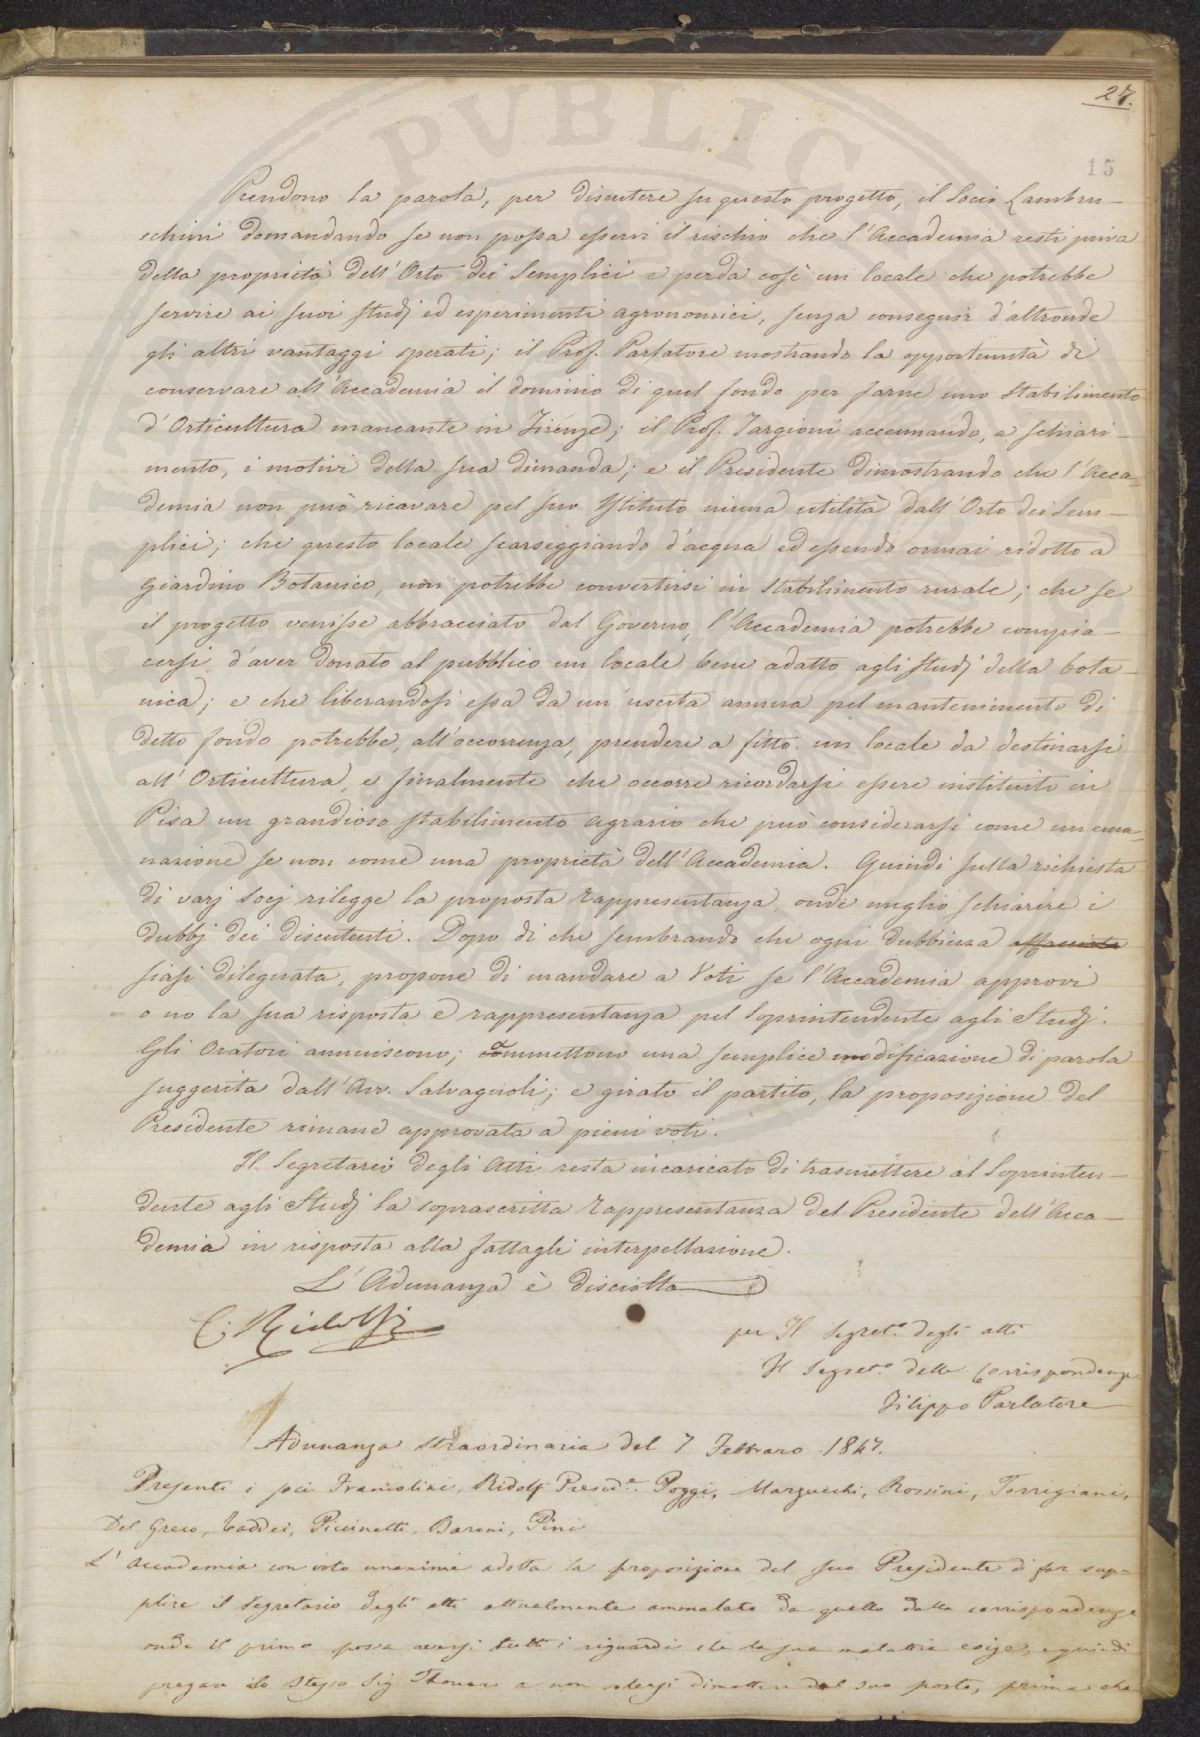 27.
15
Prendono la parola, per discutere su questo progetto, il Socio Lambru-
schini domandando se non possa esservi il rischio che l'Accademia resti priva
della proprietà dell'Orto dei Semplici e perda così un locale che potrebbe
servire ai suoi studj ed esperimenti agronomici, senza conseguir d'altronde
gli altri vantaggi sperati; il Prof. Parlatore mostrando la opportunità di
conservare all'Accademia il dominio di quel fondo per farne uno Stabilimento
d'Orticultura mancante in Firenze; il Prof. Targioni accennando, a schiari-
mento, i motivi della sua dimanda; e il Presidente dimostrando che l'Acca-
demia non può ricavare pel suo Istituto niuna utilità dall'Orto dei Sem-
plici; che questo locale scarseggiando d'acqua ed essendo ormai ridotto a
Giardino Botanico, non potrebbe convertirsi in Stabilimento rurale; che se
il progetto venisse abbracciato dal Governo, l'Accademia potrebbe compia-
cersi d'aver donato al pubblico un locale bene adatto agli studj della bota-
nica; e che liberandosi essa da un'uscita annua pel mantenimento di
detto fondo potrebbe, all'occorrenza, prendere a fitto un locale da destinarsi
all'Orticultura, e finalmente che occorre ricordarsi essere instituito in
Pisa un grandioso stabilimento agrario che può considerarsi come un ema-
nazione se non come una proprietà dell'Accademia. Quindi sulla richiesta
di varj Socj rilegge la proposta rappresentanza, onde meglio schiarire i
dubbj dei discutenti. Dopo di che sembrando che ogni dubbiezza
siasi dileguata, propone di mandare a Voti se l'Accademia approvi
o no la sua risposta e rappresentanza pel Soprintendente agli Studj.
Gli Oratori annuiscono; ammettono una semplice modificazione di parola
suggerita dall'Avv. Salvagnoli; e girato il partito, la proposizione del
Presidente rimane approvata a pieni voti.
Il Segretario degli Atti resta incaricato di trasmettere al Soprinten-
dente agli Studj la soprascritta rappresentanza del Presidente dell'Acca-
demia in risposta alla fattagli interpellazione.
L'Adunanza è disciolta
C. Ridolfi
per Il Segret.o degli atti
Il Segret.o delle Corrispondenze
Filippo Parlatore
Adunanza straordinaria del 7 Febbraro 1847.
Presenti i Ridolfi Presid.e Poggi, Marzucchi, Rossini, Torrigiani,
Del Greco, Taddei, Piccinetti, Baroni, Pini
L'Accademia con voto unanime adotta la proposizione del suo Presidente di far sup-
plire il Segretario degli atti attualmente ammalato da quello delle corrispondenze
onde il primo possa aversi tutti i riguardi che la sua malattia esige, e quindi
pregare lo stesso Sig Thouar a non volersi dimettere dal suo posto, prima che